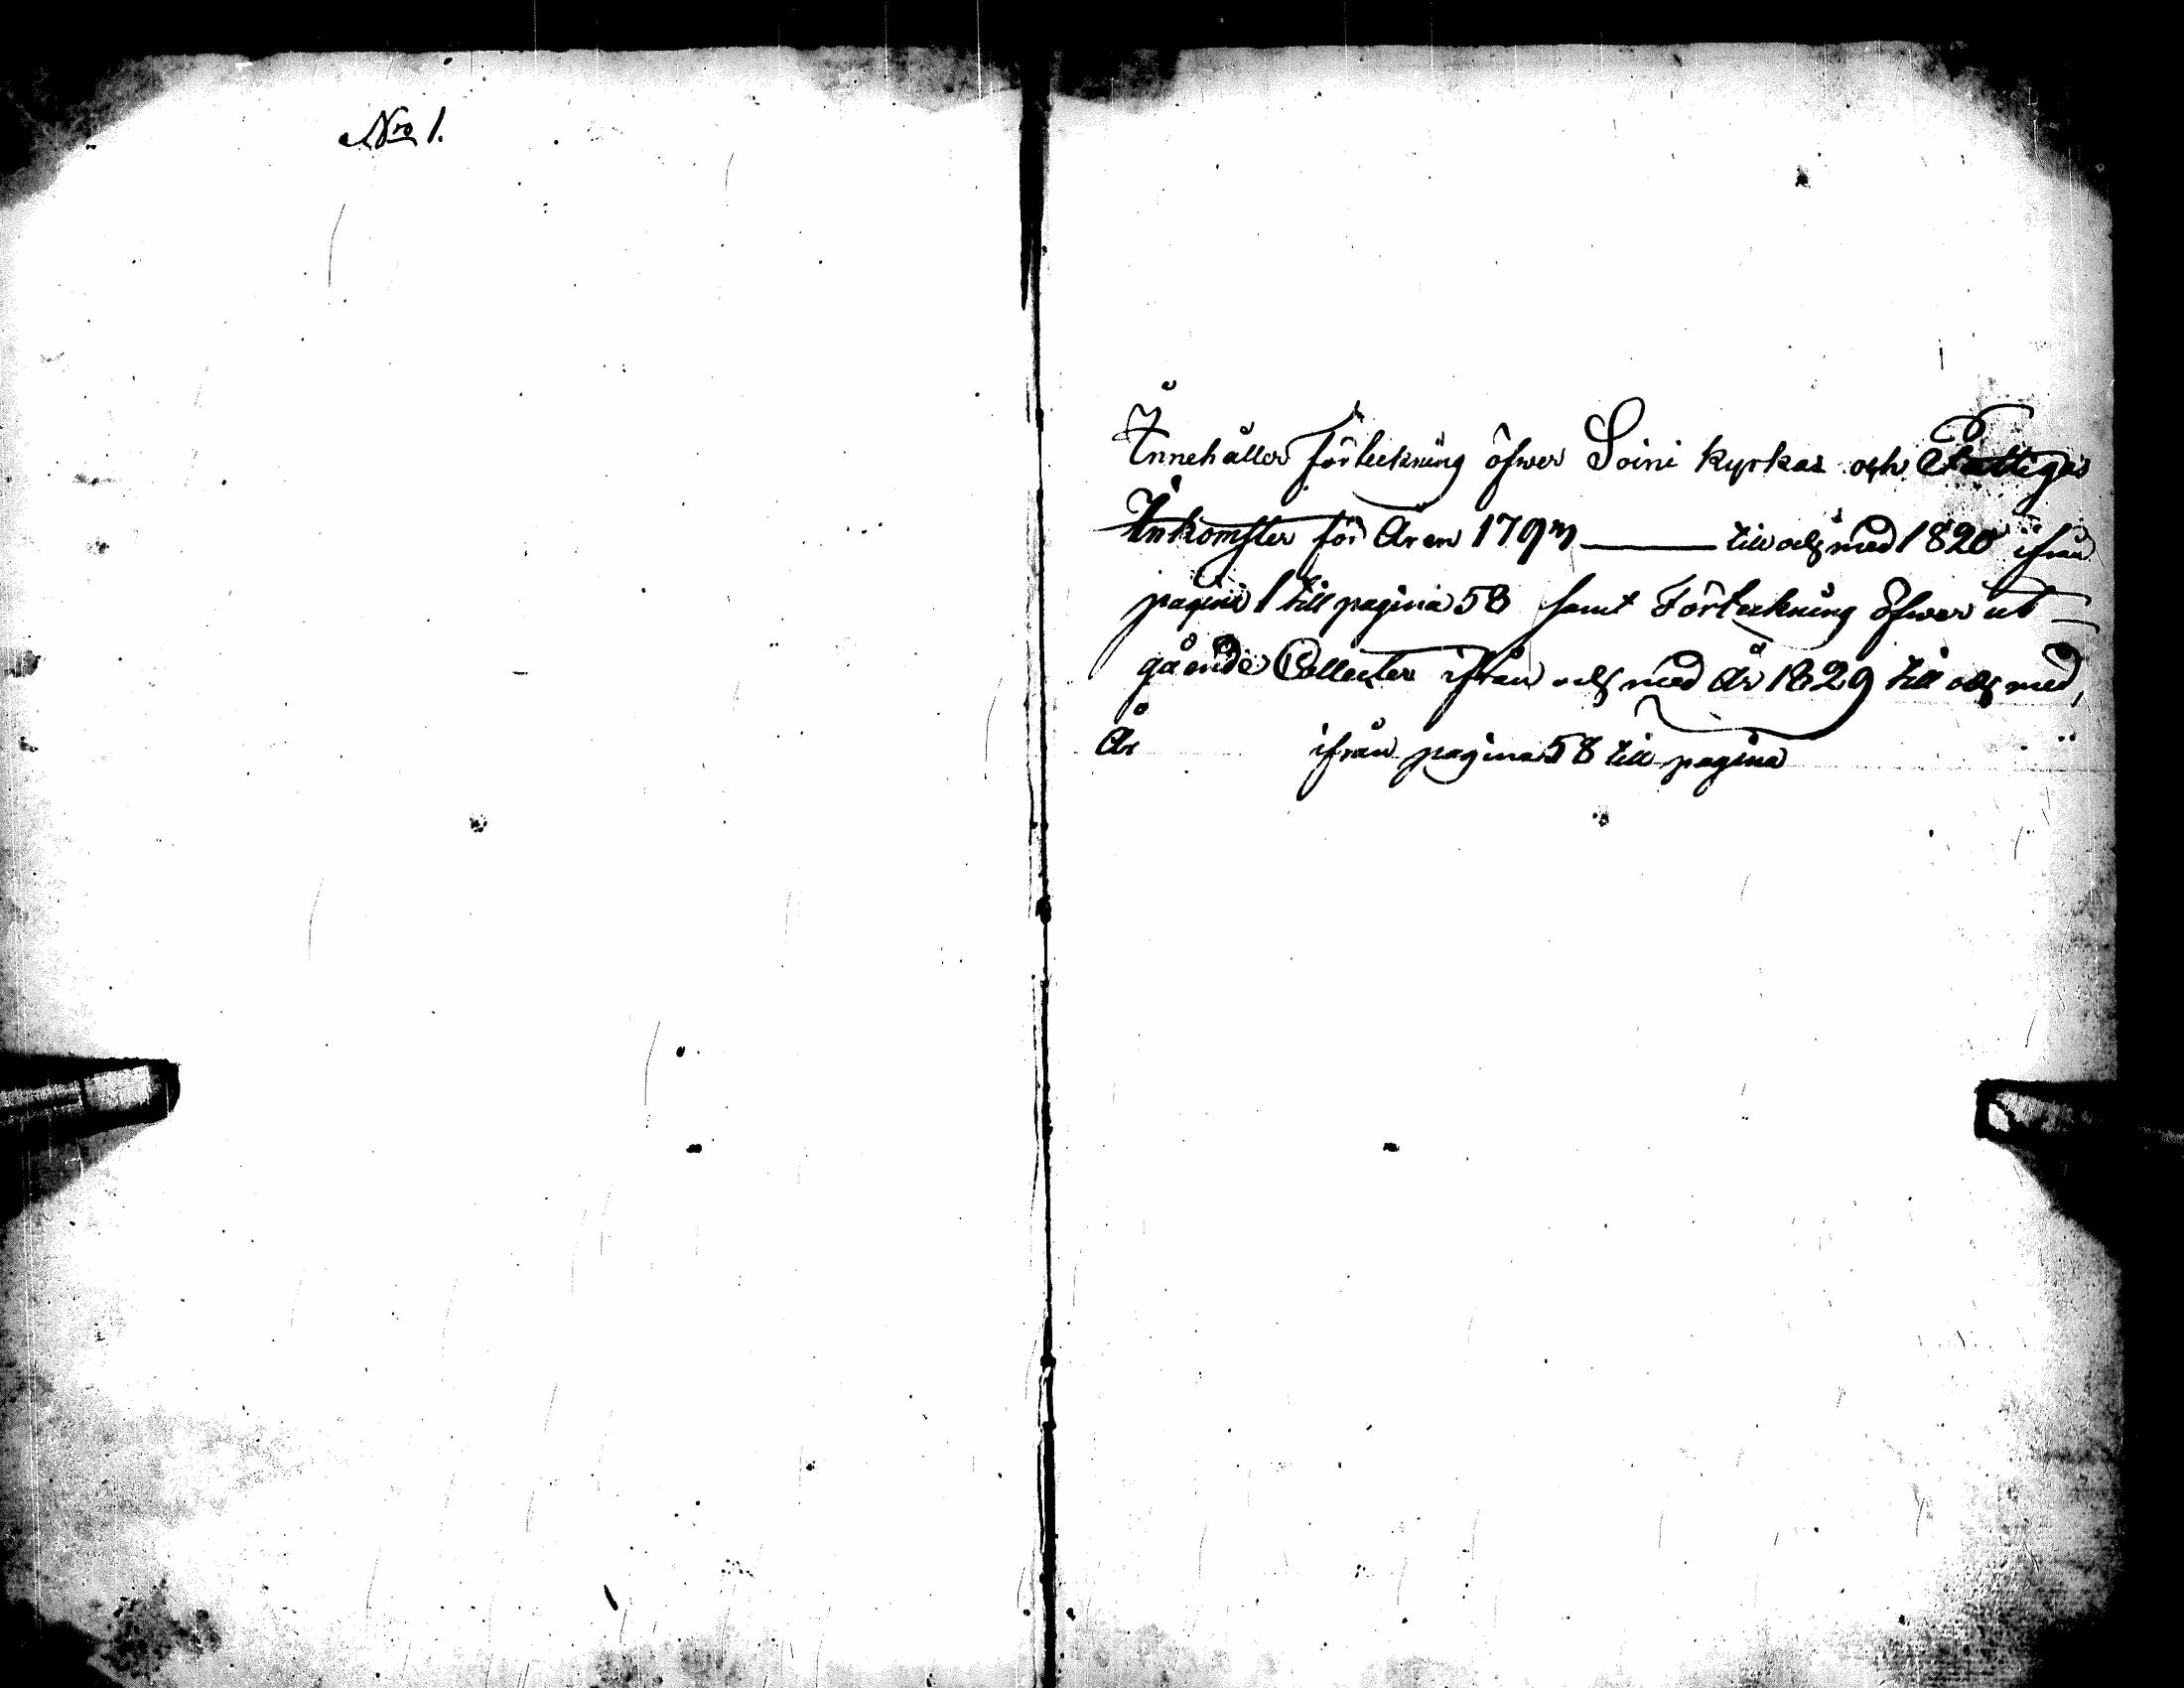 Nro 1.
Innehåller Förteckning öfwer Soini kyrkas och Fattigas
Inkomster för Åren 1793 — till och med 1820 ifrån
pagina 1 till pagina 58 samt Förteckning öfwer ut
gående Collecter ifrån och med År 1829 till och med,
År ifrån pagina 58 till pagina